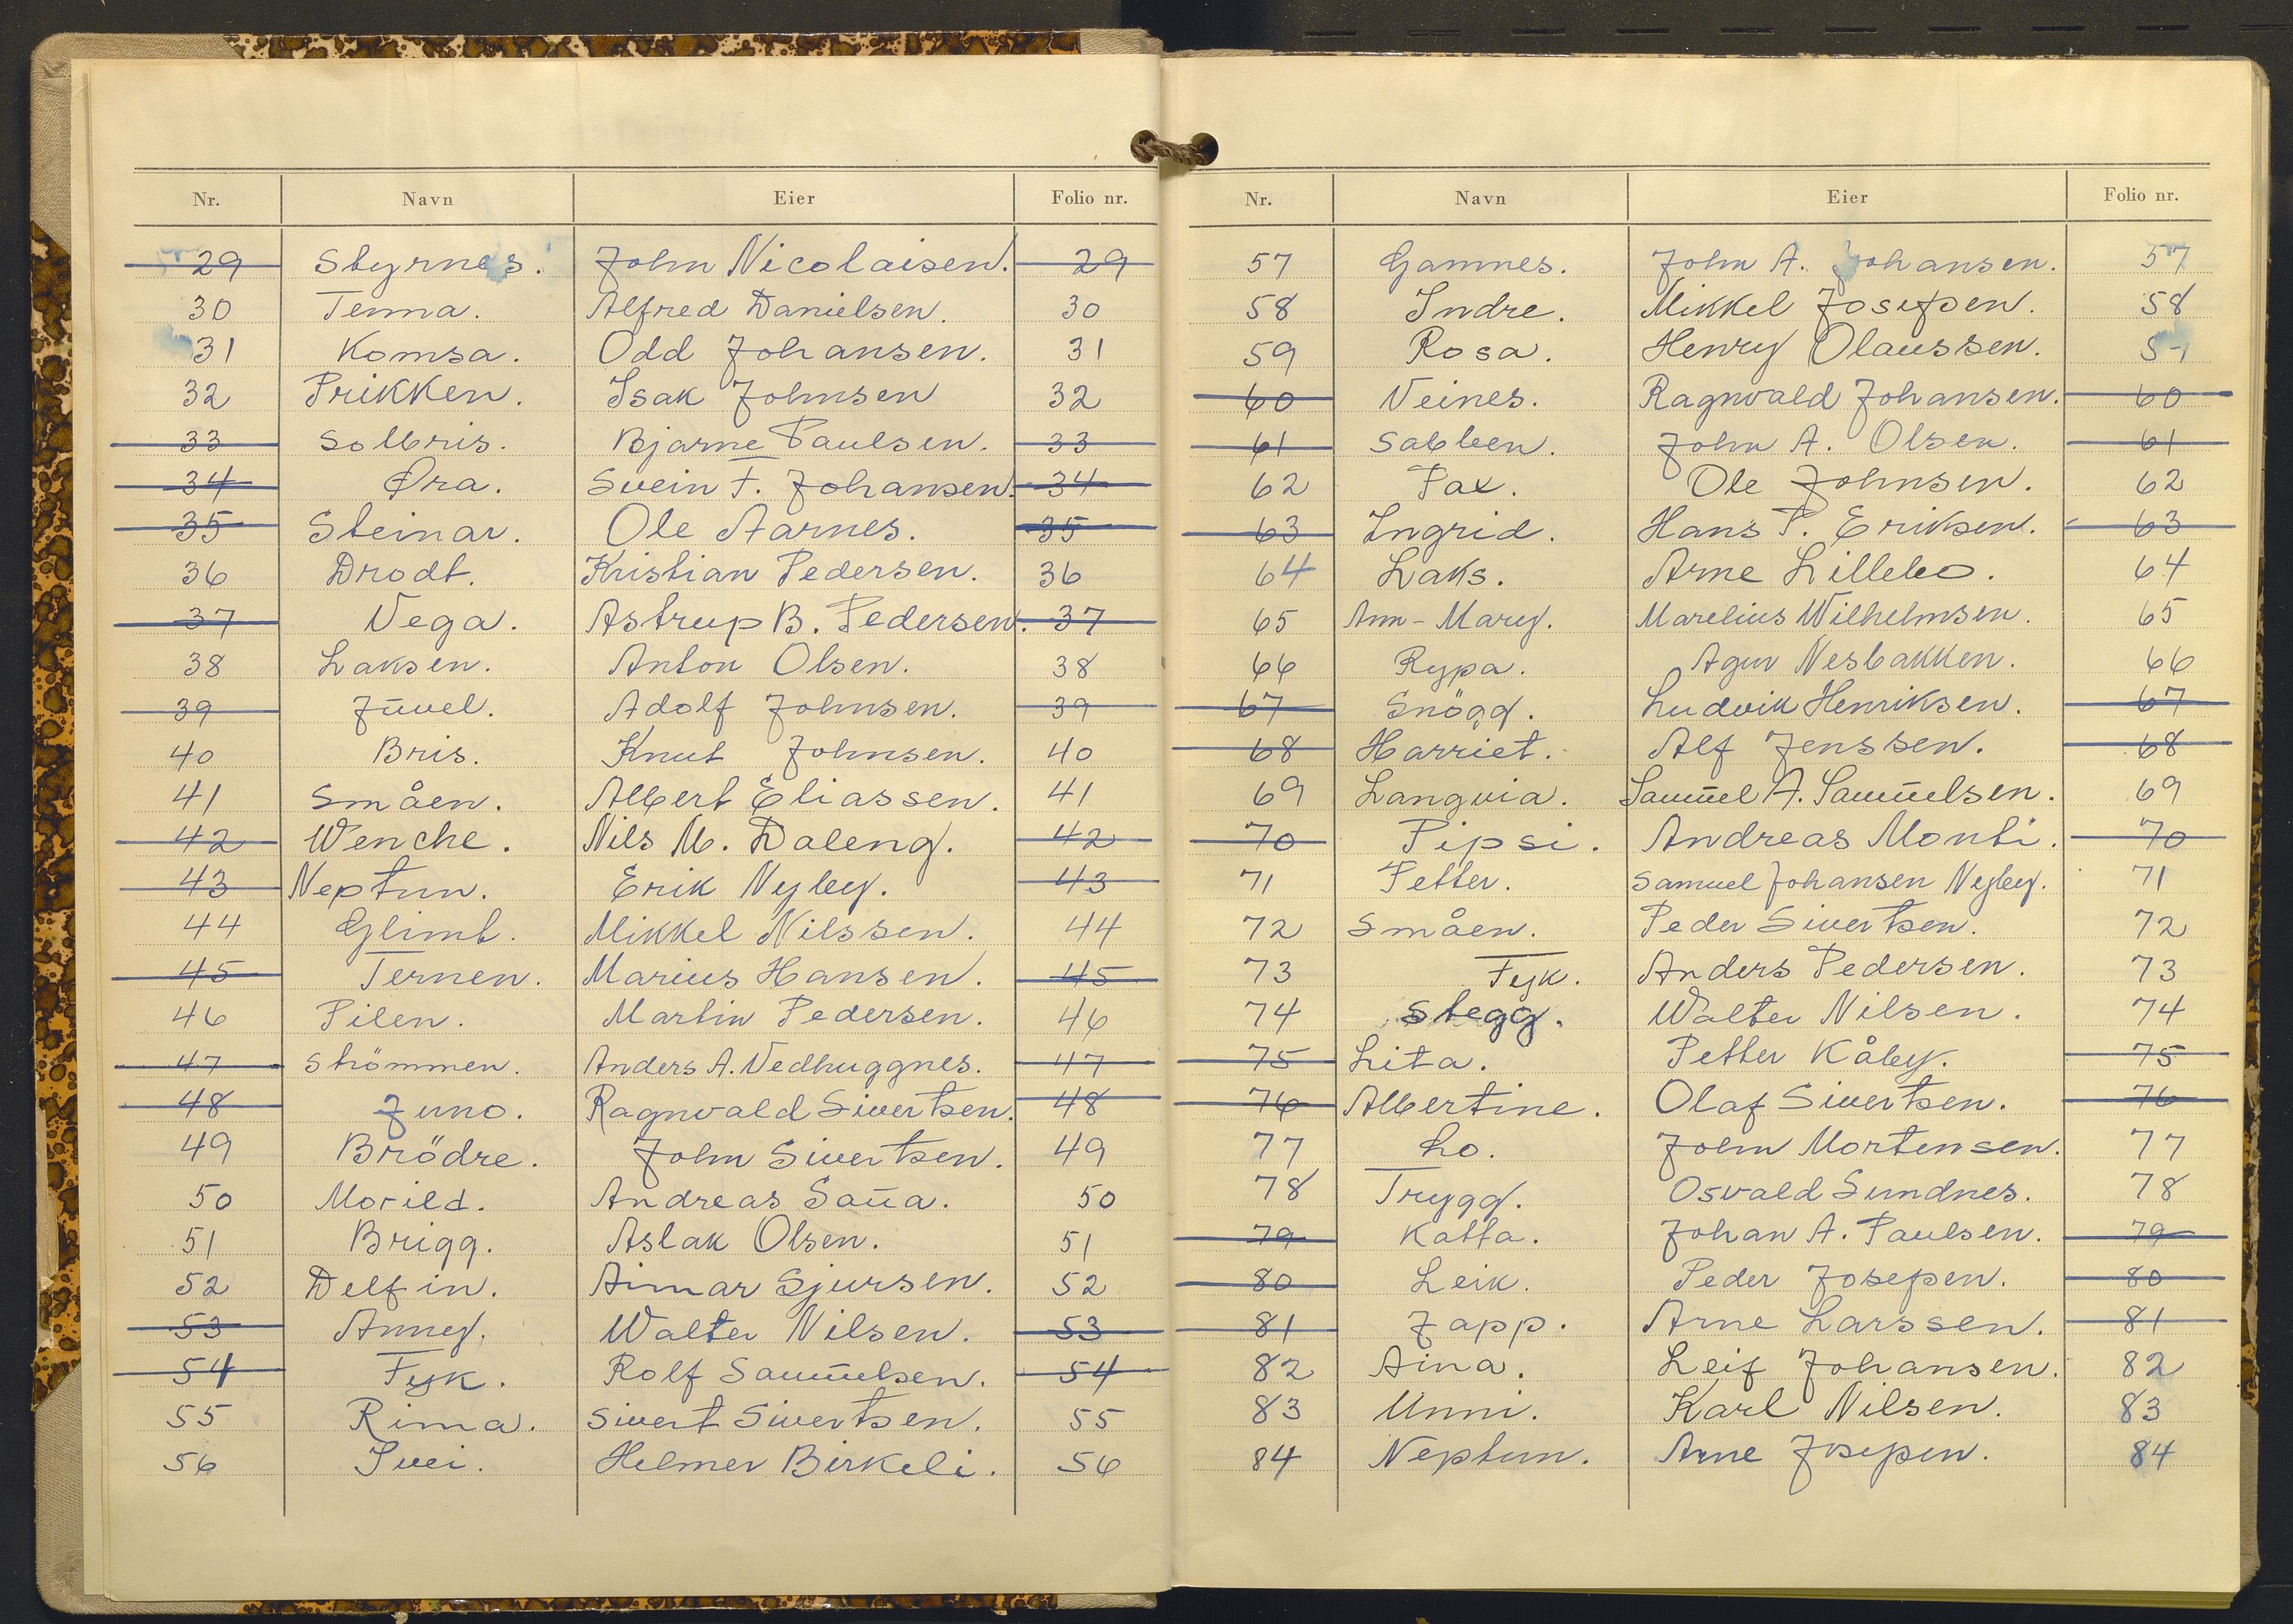 Nr. Navn Eier Folio nr.
29 Styrnes. John Nicolaisen. 29
30 Tenna. Alfred Danielsen. 30
31 Komsa. Odd Johansen. 31
32 Prikken. Isak Johnsen 32
33 Solbris. Bjarne Paulsen. 33
34 Øra. Svein F. Johansen. 34
35 Steinar. Ole Aarnes. 35
36 Drodt. Kristian Pedersen. 36
37 Vega. Astrup B. Pedersen. 37
38 Laksen. Anton Olsen. 38
39 Jūvel. Adolf Johnsen. 39
40 Bris. Knut Johnsen. 40
41 Småen. Albert Eliassen. 41
42 Wenche. Nils M. Daleng. 42
43 Neptun. Erik Nyby. 43
44 Glimt. Mikkel Nilssen. 44
45 Ternen. Marius Hansen. 45
46 Pilen. Martin Pedersen. 46
47 Strömmen. Anders A. Vedhuggnes. 47
48 Juno. Ragnvald Sivertsen. 48
49 Brödre. John Sivertsen. 49
50 Morild. Andreas Saūa. 50
51 Brigg. Aslak Olsen. 51
52 Delfin. Aimar Sjursen. 52
53 Anny. Walter Nilsen. 53
54 Fyk. Rolf Samūelsen. 54
55 Rima. Sivert Sivertsen. 55
56 Ivei. Helmer Birkeli. 56
Nr. Navn Eier Folio nr.
57 Gamnes. John A. Johansen. 57
58 Indre. Mikkel Josefsen. 58
59 Rosa. Henry Olaussen. 59
60 Veines. Ragnvald Johansen. 60
61 Sabben. John A. Olsen. 61
62 Pax. Ole Johnsen. 62
63 Ingrid. Hans P. Eriksen. 63
64 Laks. Arne Lillebo. 64
65 Ann-Mary. Marelius Wilhelmsen. 65
66 Rypa. Agur Nesbakken. 66
67 Snögg. Ludvik Henriksen. 67
68 Harriet. Alf Jenssen. 68
69 Langvia. Samūel A. Samūelsen. 69
70 Pipsi. Andreas Monti. 70
71 Petter. Samuel Johansen Nyby. 71
72 Småen. Peder Sivertsen. 72
73 Fyk. Anders Pedersen. 73
74 Stegg. Walter Nilsen. 74
75 Lita. Petter Kåby. 75
76 Albertine. Olaf Sivertsen. 76
77 Lo. John Mortensen. 77
78 Trygg. Osvald Sundnes. 78
79 Katta. Johan A. Paulsen. 79
80 Leik. Peder Josepsen. 80
81 Japp. Arne Larssen. 81
82 Aina. Leif Johansen. 82
83 Unni. Karl Nilsen. 83
84 Neptun. Arne Josepsen. 84